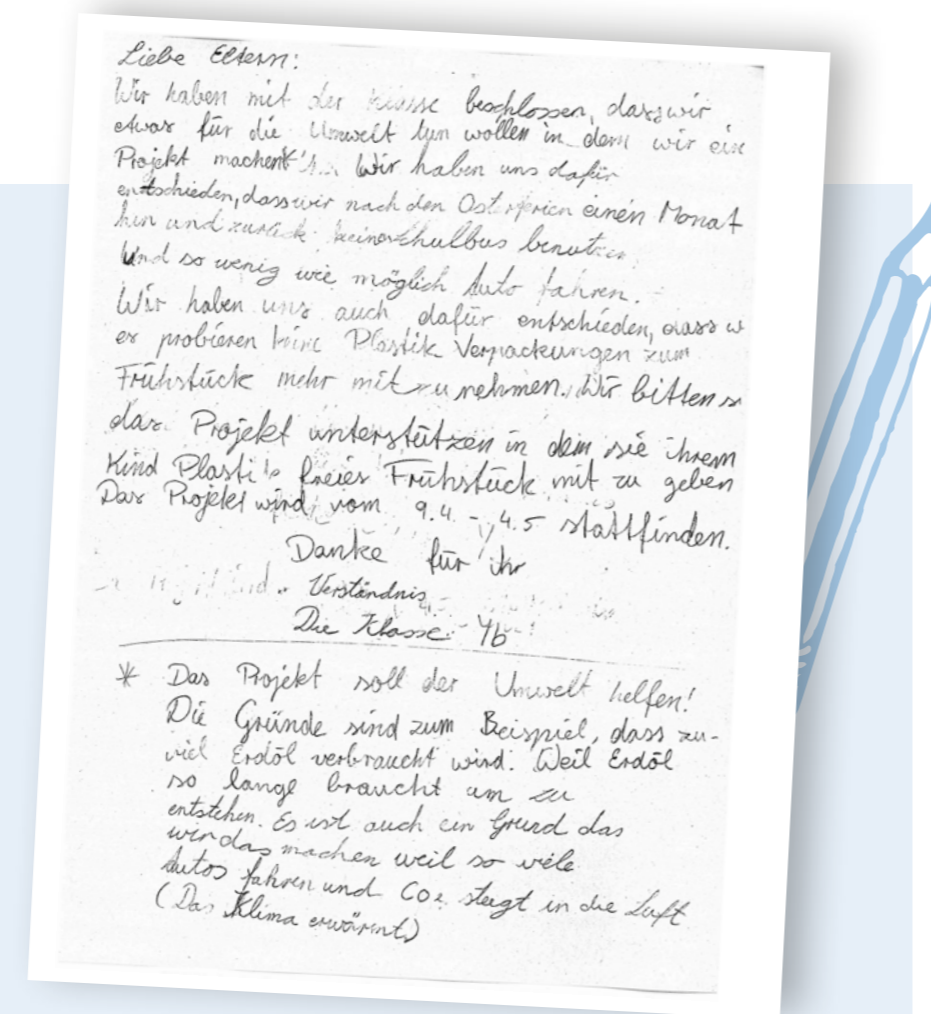 Liebe Eltern:
Wir haben mit der Klasse beschlossen, dass wir
etwas für die Umwelt tun wollen in dem wir ein
Projekt machen. Wir haben uns dafür
entschieden, dass wir nach den Osterferien einen Monat
hin und zurück keinen Schulbus benutzen
Und so wenig wie möglich Auto fahren.
Wir haben uns auch dafür entschieden, dass w
es probieren keine Plastik Verpackungen zum
Frühstück mehr mit zu nehmen. Wir bitten s
das Projekt unterstützen in dem sie ihrem
Kind Plastik freies Frühstück mit zu geben
Das Projekt wird vom 9.4. - 4.5 stattfinden.
Danke für ihr
Verständnis
Die Klasse 4b
* Das Projekt soll der Umwelt helfen!
Die Gründe sind zum Beispiel, dass zu-
viel Erdöl verbraucht wird. Weil Erdöl
so lange braucht um zu
entstehen. Es ist auch ein Grund das
wir das machen weil so viele
Autos fahren und CO2 steigt in die Luft
(Das Klima erwärmt)